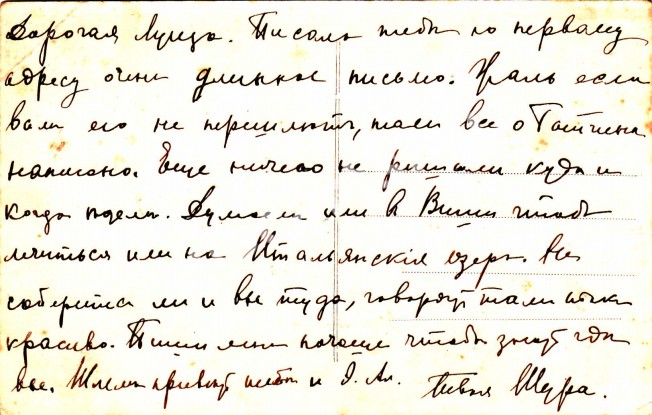 Дорогая Луиза. Писала тебѣ по первому
адресу очень длинное письмо. Жаль если
вам его не перешлютъ, там все о Гатчинѣ
написано. Еще ничего не рѣшили куда и
когда поѣдем. Думаем или в Виши чтобъ
лѣчиться или на Итальянскія озера. Не
соберетесь ли и вы туда, говорят там очень
красиво. Пиши мнѣ почаще чтобъ знать гдѣ
вы. Шлем привѣт тебѣ и Ал. Твоя Шура.